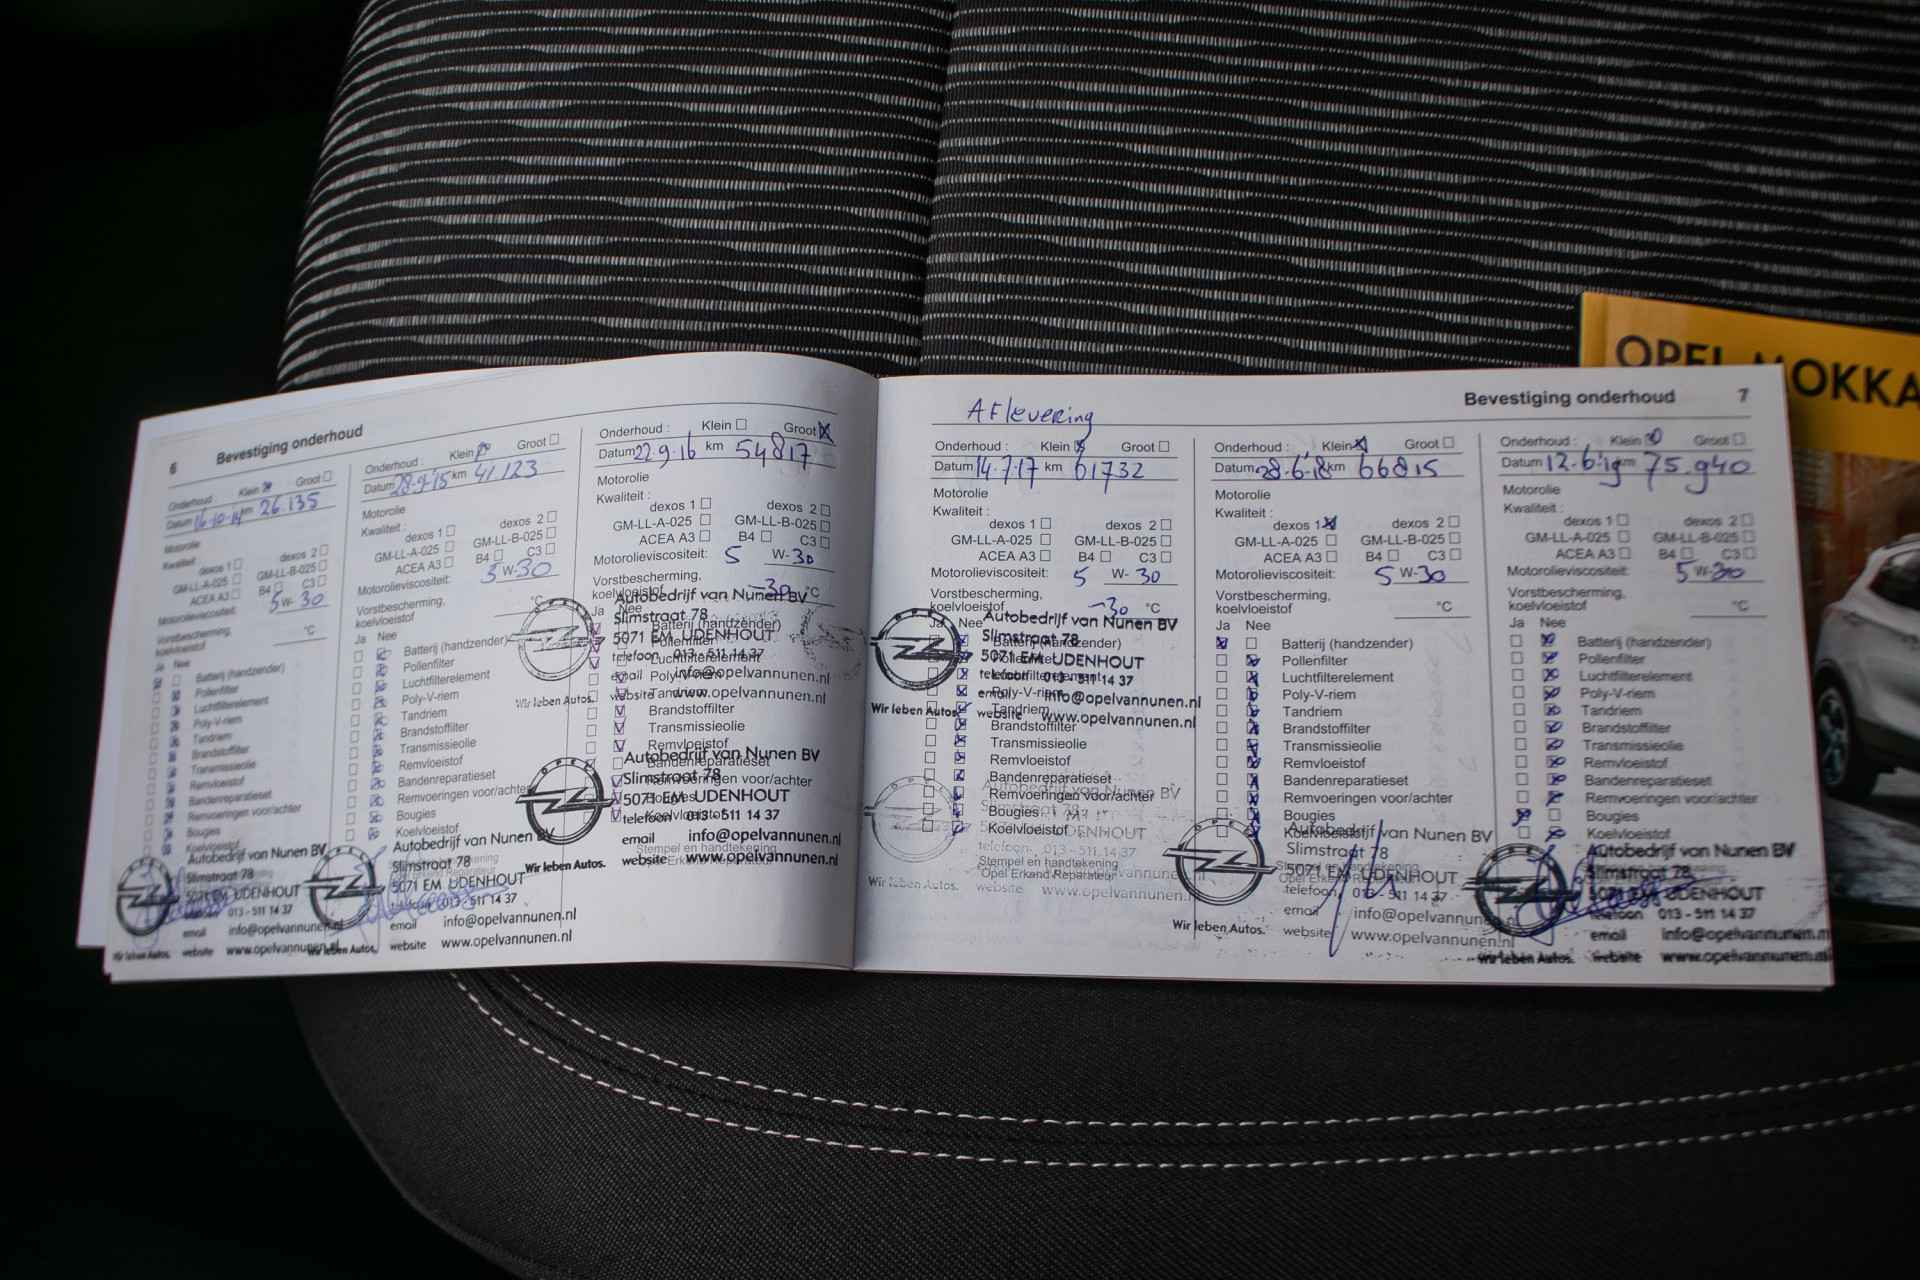 6 Bevestiging onderhoud
Onderhoud : Klein Groot
Datum 16-10-14 km 26.135
Motorolie
Kwaliteit :
dexos 1 dexos 2
GM-LL-A-025 GM-LL-B-025
ACEA A3 B4 C3
Motorolieviscositeit: 5 W- 30
Vorstbescherming,
koelvloeistof °C
Ja Nee
Batterij (handzender)
Pollenfilter
Luchtfilterelement
Poly-V-riem
Tandriem
Brandstoffilter
Transmissieolie
Remvloeistof
Bandenreparatieset
Remvoeringen voor/achter
Bougies
Koelvloeistof
Autobedrijf van Nunen BV
Slimstraat 78
5071 EM UDENHOUT
telefoon 013 - 511 14 37
email info@opelvannunen.nl
Wir leben Autos. website www.opelvannunen.nl
Onderhoud : Klein Groot
Datum 28-9-'15 km 41.123
Motorolie
Kwaliteit :
dexos 1 dexos 2
GM-LL-A-025 GM-LL-B-025
ACEA A3 B4 C3
Motorolieviscositeit: 5 W- 30
Vorstbescherming,
koelvloeistof °C
Ja Nee
Batterij (handzender)
Pollenfilter
Luchtfilterelement
Poly-V-riem
Tandriem
Brandstoffilter
Transmissieolie
Remvloeistof
Bandenreparatieset
Remvoeringen voor/achter
Bougies
Koelvloeistof
OPEL
Autobedrijf van Nunen BV
Slimstraat 78
5071 EM UDENHOUT
telefoon 013 - 511 14 37
email info@opelvannunen.nl
Wir leben Autos. website www.opelvannunen.nl
Onderhoud : Klein Groot
Datum 22.9.16 km 54817
Motorolie
Kwaliteit :
dexos 1 dexos 2
GM-LL-A-025 GM-LL-B-025
ACEA A3 B4 C3
Motorolieviscositeit: 5 W- 30
Vorstbescherming,
koelvloeistof -30 °C
Ja Nee
Autobedrijf van Nunen BV
Slimstraat 78
Batterij (handzender)
5071 EM UDENHOUT
Pollenfilter
telefoon 013 - 511 14 37
Luchtfilterelement
email info@opelvannunen.nl
Poly-V-riem
Wir leben Autos. website www.opelvannunen.nl
Tandriem
Brandstoffilter
Transmissieolie
Remvloeistof
Autobedrijf van Nunen BV
Bandenreparatieset
OPEL
Slimstraat 78
Remvoeringen voor/achter
5071 EM UDENHOUT
Bougies
telefoon 013 - 511 14 37
Koelvloeistof
email info@opelvannunen.nl
Stempel en handtekening
Opel Erkend Reparateur
Wir leben Autos. website www.opelvannunen.nl
Bevestiging onderhoud 7
Aflevering
Onderhoud : Klein Groot
Datum 14.7.17 km 61732
Motorolie
Kwaliteit :
dexos 1 dexos 2
GM-LL-A-025 GM-LL-B-025
ACEA A3 B4 C3
Motorolieviscositeit: 5 W- 30
Vorstbescherming,
koelvloeistof -30 °C
Ja Nee
Autobedrijf van Nunen BV
Slimstraat 78
Batterij (handzender)
5071 EM UDENHOUT
Pollenfilter
telefoon 013 - 511 14 37
Luchtfilterelement
email info@opelvannunen.nl
Poly-V-riem
Wir leben Autos. website www.opelvannunen.nl
Tandriem
Brandstoffilter
Transmissieolie
Remvloeistof
Bandenreparatieset
Remvoeringen voor/achter
Bougies
Koelvloeistof
UDENHOUT
telefoon 013 - 511 14 37
Stempel en handtekening
Opel Erkend Reparateur
Wir leben Autos. website www.opelvannunen.nl
Onderhoud : Klein Groot
Datum 28.6.'18 km 66815
Motorolie
Kwaliteit :
dexos 1 dexos 2
GM-LL-A-025 GM-LL-B-025
ACEA A3 B4 C3
Motorolieviscositeit: 5 W-30
Vorstbescherming,
koelvloeistof °C
Ja Nee
Batterij (handzender)
Pollenfilter
Luchtfilterelement
Poly-V-riem
Tandriem
Brandstoffilter
Transmissieolie
Remvloeistof
Bandenreparatieset
Remvoeringen voor/achter
Bougies
Koelvloeistof
OPEL
Autobedrijf van Nunen BV
Slimstraat 78
5071 EM UDENHOUT
telefoon 013 - 511 14 37
email info@opelvannunen.nl
Wir leben Autos. website www.opelvannunen.nl
Onderhoud : Klein Groot
Datum 12.6.'19 km 75.940
Motorolie
Kwaliteit :
dexos 1 dexos 2
GM-LL-A-025 GM-LL-B-025
ACEA A3 B4 C3
Motorolieviscositeit: 5 W-30
Vorstbescherming,
koelvloeistof °C
Ja Nee
Batterij (handzender)
Pollenfilter
Luchtfilterelement
Poly-V-riem
Tandriem
Brandstoffilter
Transmissieolie
Remvloeistof
Bandenreparatieset
Remvoeringen voor/achter
Bougies
Koelvloeistof
Autobedrijf van Nunen BV
Slimstraat 78
5071 EM UDENHOUT
telefoon 013 - 511 14 37
email info@opelvannunen.n
Wir leben Autos. website www.opelvannunen.nl
OPEL MOKKA